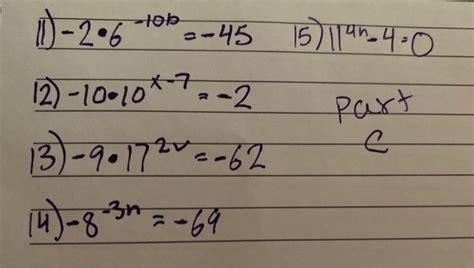 11) -2•6^-10b = -45
15) 11^4n - 4 = 0
12) -10•10^x-7 = -2
part
C
13) -9•17^2v = -62
14) -8^-3n = -69